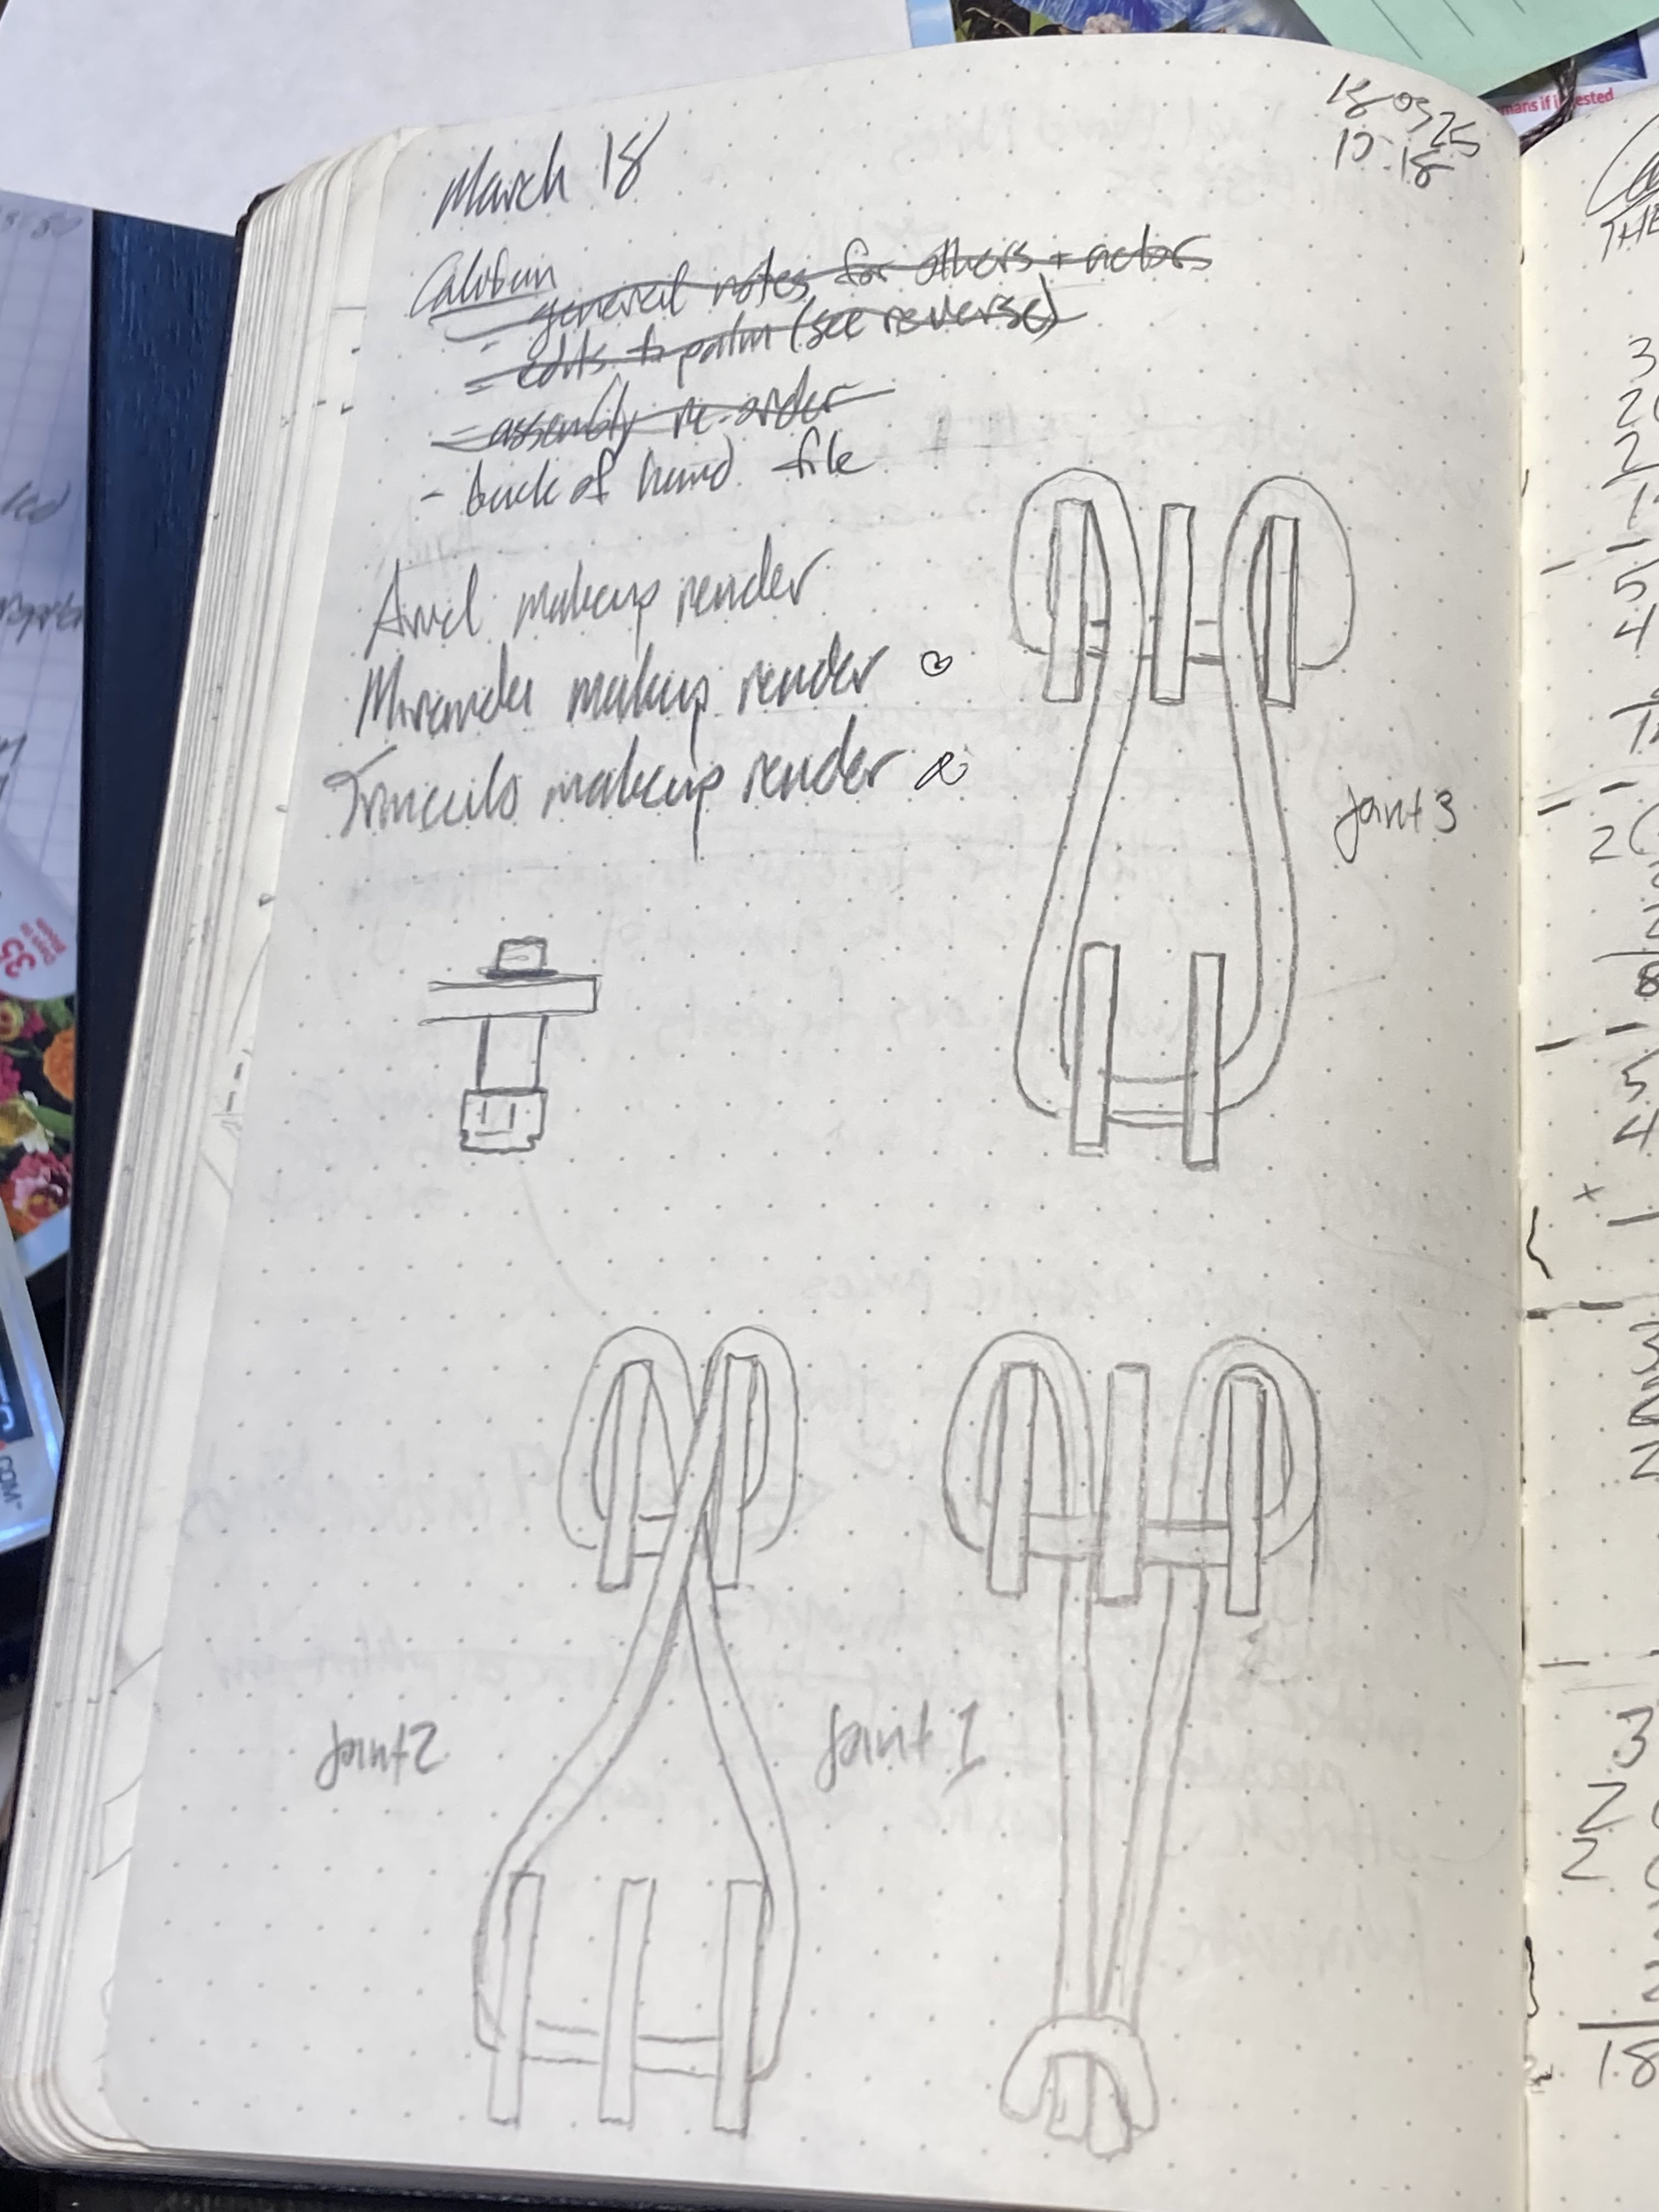 March 18
18 03 25
10:18
Caliban
- general notes for others + actors
- edits to palm (see reverse)
- assembly re-order
- back of hand file
Ariel makeup render
Miranda makeup render
Trinculo makeup render
Joint 3
Joint 2
Joint 1
mans if i ested
THE
3
2
2
1
5
4
2(
8
5
4
x
3
2
3
2
2
18
35
.COM